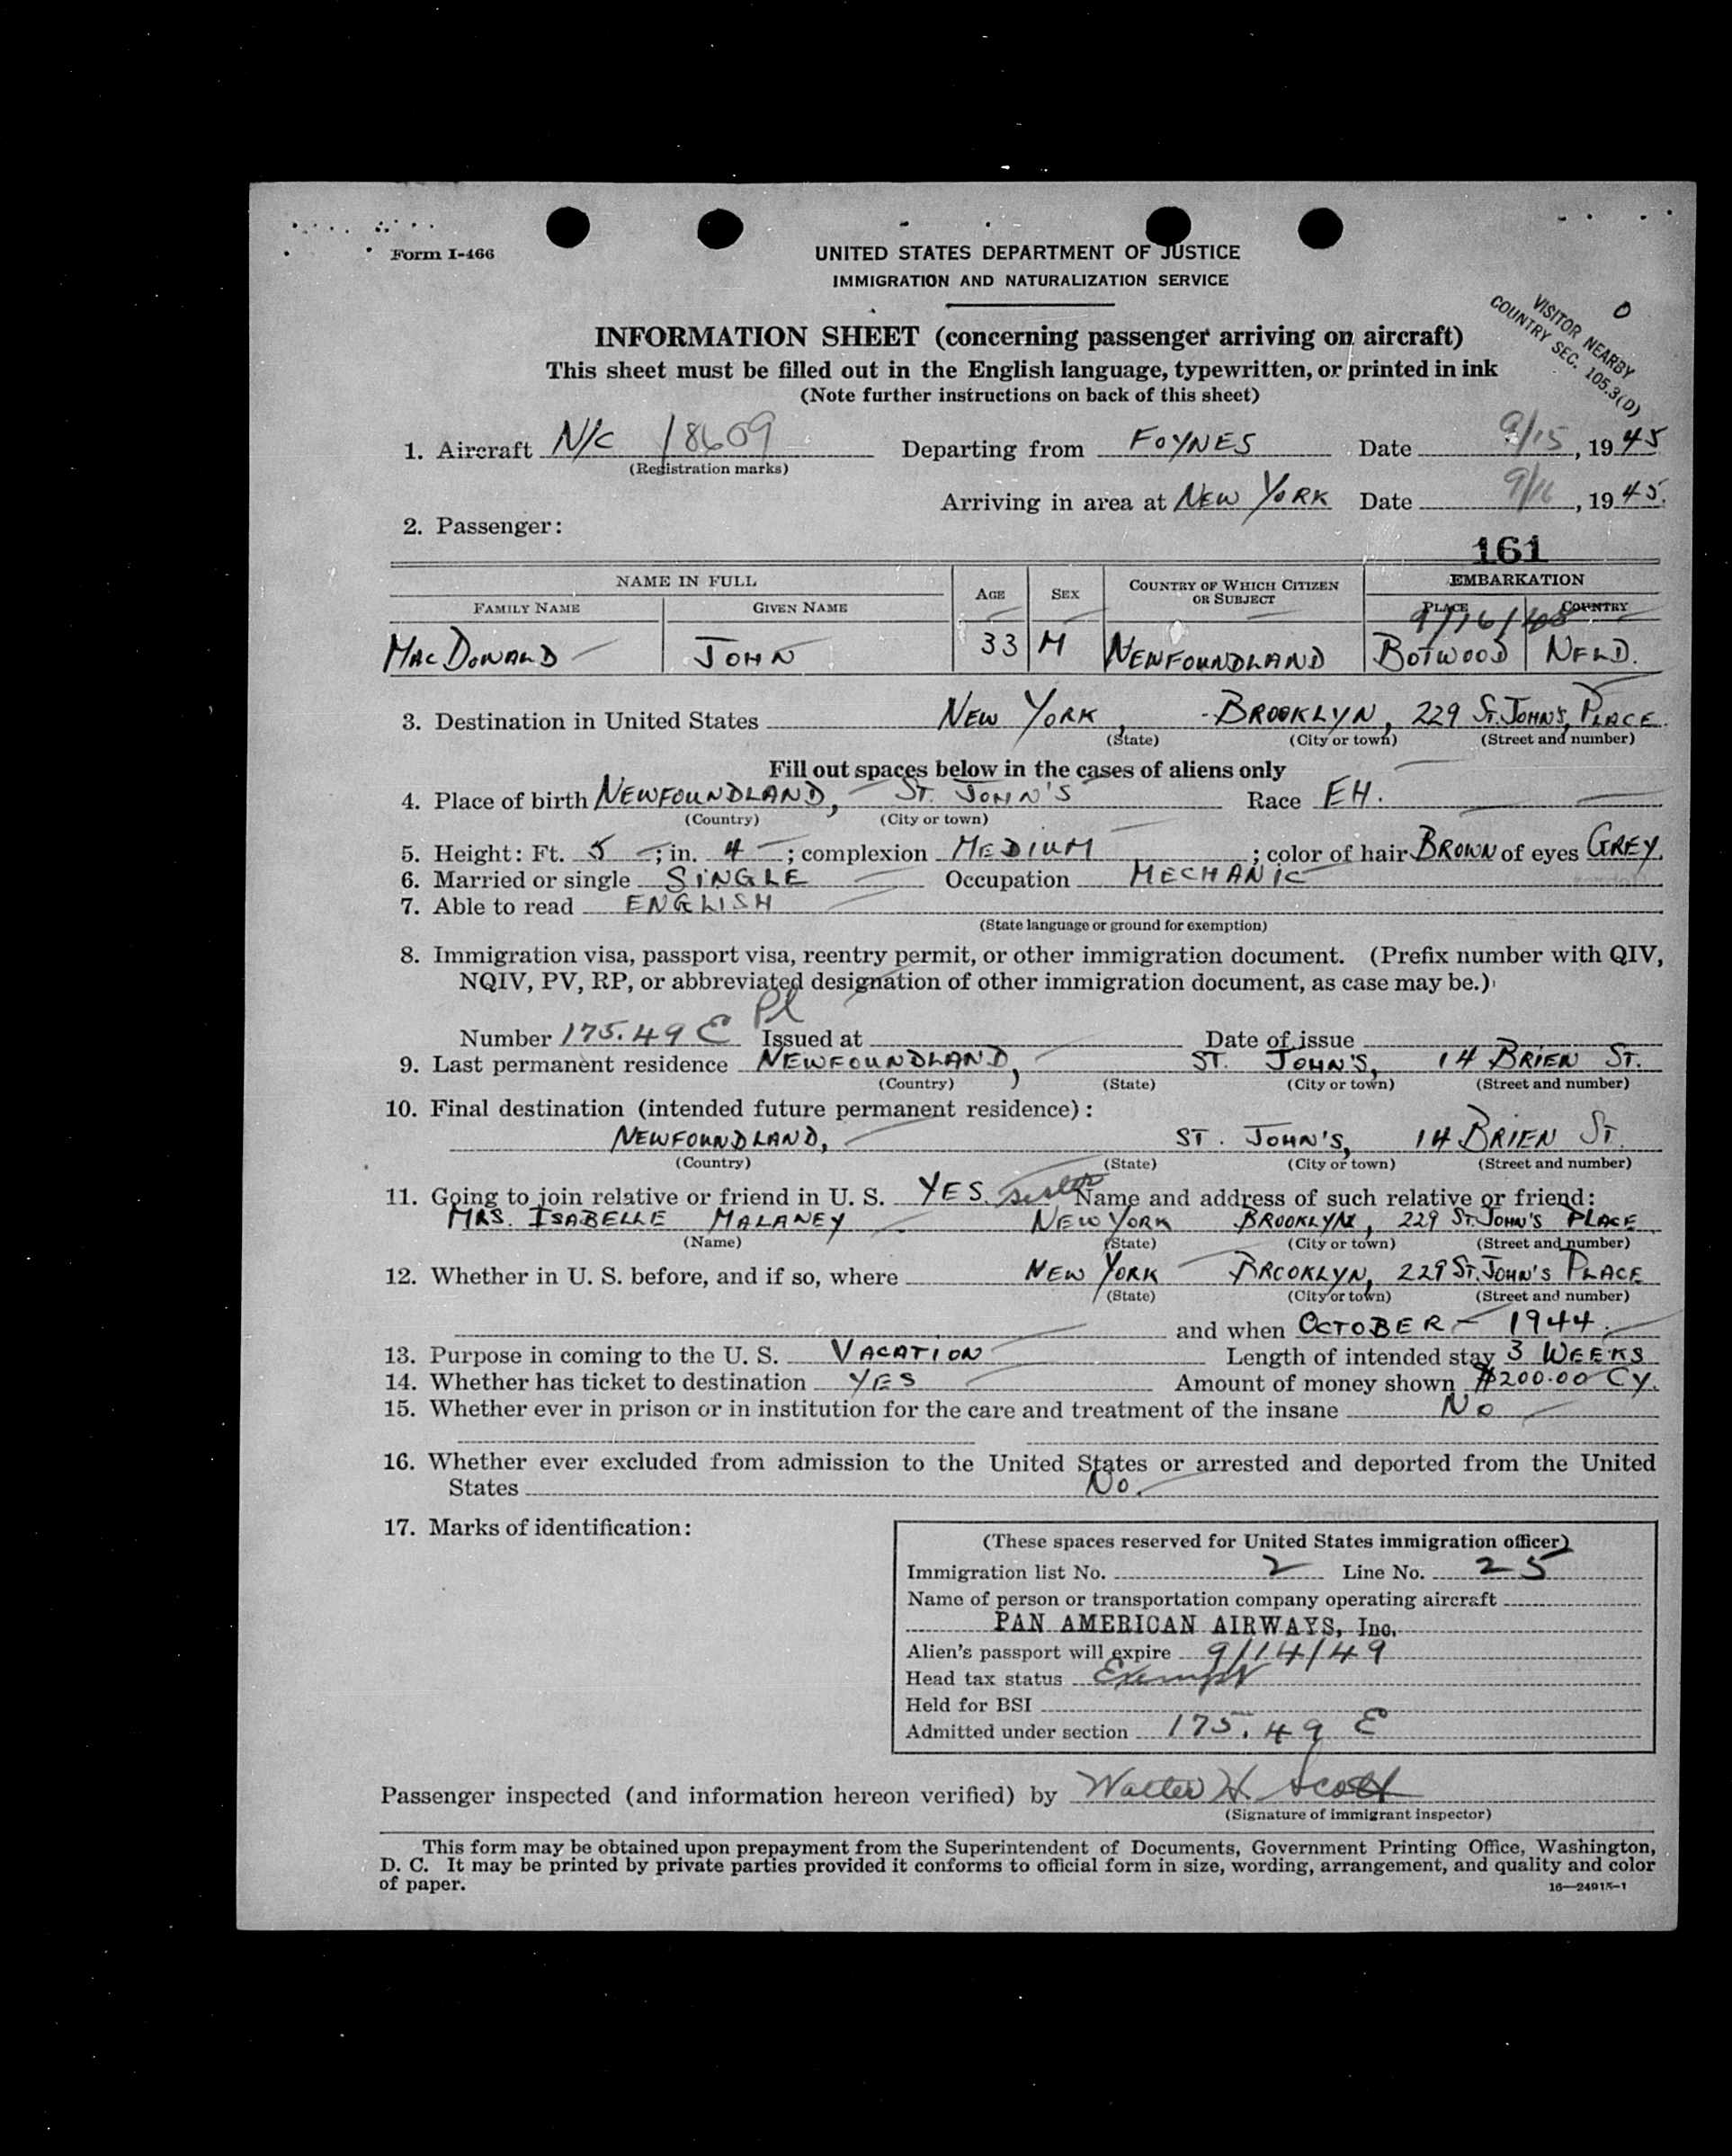 Form I-466
UNITED STATES DEPARTMENT OF JUSTICE
IMMIGRATION AND NATURALIZATION SERVICE
VISITOR NEARBY
COUNTRY SEC. 105.3(D)
0
INFORMATION SHEET (concerning passenger arriving on aircraft)
This sheet must be filled out in the English language, typewritten, or printed in ink
(Note further instructions on back of this sheet)
1. Aircraft N/C 18609 Departing from FOYNES Date 9/15, 1945
(Registration marks)
Arriving in area at NEW YORK Date 9/16, 1945.
2. Passenger:
161
NAME IN FULL AGE SEX COUNTRY OF WHICH CITIZEN OR SUBJECT EMBARKATION
FAMILY NAME GIVEN NAME PLACE COUNTRY
9/16/45
MACDONALD JOHN 33 M NEWFOUNDLAND BOTWOOD NFLD.
3. Destination in United States NEW YORK, BROOKLYN, 229 ST. JOHN'S, PLACE.
(State) (City or town) (Street and number)
Fill out spaces below in the cases of aliens only
4. Place of birth NEWFOUNDLAND, ST. JOHN'S Race EH.
(Country) (City or town)
5. Height: Ft. 5; in. 4; complexion MEDIUM; color of hair BROWN of eyes GREY.
6. Married or single SINGLE Occupation MECHANIC
7. Able to read ENGLISH
(State language or ground for exemption)
8. Immigration visa, passport visa, reentry permit, or other immigration document. (Prefix number with QIV,
NQIV, PV, RP, or abbreviated designation of other immigration document, as case may be.)
Pl
Number 175.49 E Issued at Date of issue
9. Last permanent residence NEWFOUNDLAND, ST. JOHN'S, 14 BRIEN ST.
(Country) (State) (City or town) (Street and number)
10. Final destination (intended future permanent residence):
NEWFOUNDLAND, ST. JOHN'S, 14 BRIEN ST.
(Country) (State) (City or town) (Street and number)
11. Going to join relative or friend in U. S. YES. sister Name and address of such relative or friend:
MRS. ISABELLE MALANEY NEW YORK BROOKLYN, 229 ST. JOHN'S PLACE
(Name) (State) (City or town) (Street and number)
12. Whether in U. S. before, and if so, where NEW YORK BROOKLYN, 229 ST. JOHN'S PLACE
(State) (City or town) (Street and number)
and when OCTOBER - 1944.
13. Purpose in coming to the U. S. VACATION Length of intended stay 3 WEEKS
14. Whether has ticket to destination YES Amount of money shown $200.00 CY.
15. Whether ever in prison or in institution for the care and treatment of the insane NO
16. Whether ever excluded from admission to the United States or arrested and deported from the United
States NO.
17. Marks of identification:
(These spaces reserved for United States immigration officer)
Immigration list No. 2 Line No. 25
Name of person or transportation company operating aircraft
PAN AMERICAN AIRWAYS, Inc.
Alien's passport will expire 9/14/49
Head tax status Exempt
Held for BSI
Admitted under section 175.49 E
Passenger inspected (and information hereon verified) by Walter H. Scott
(Signature of immigrant inspector)
This form may be obtained upon prepayment from the Superintendent of Documents, Government Printing Office, Washington,
D. C. It may be printed by private parties provided it conforms to official form in size, wording, arrangement, and quality and color
of paper.
16—24915-1